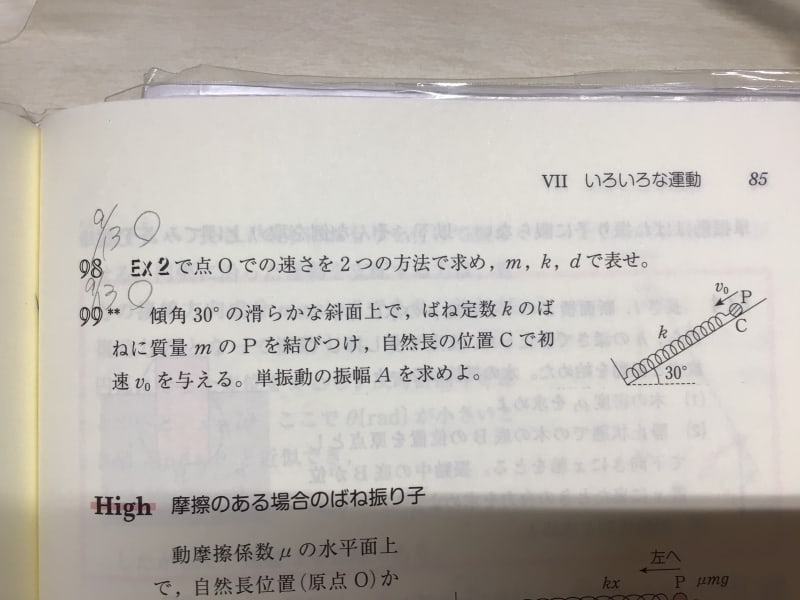 VII いろいろな運動 85
9/13 ○
98 EX 2 で点 O での速さを 2 つの方法で求め，m，k，d で表せ。
9/3 ○
99** 傾角 30° の滑らかな斜面上で，ばね定数 k のば
ねに質量 m の P を結びつけ，自然長の位置 C で初
速 v₀ を与える。単振動の振幅 A を求めよ。
v₀ P
C
k
30°
High 摩擦のある場合のばね振り子
動摩擦係数 μ の水平面上
で，自然長位置(原点 O)か
左へ
kx P μmg